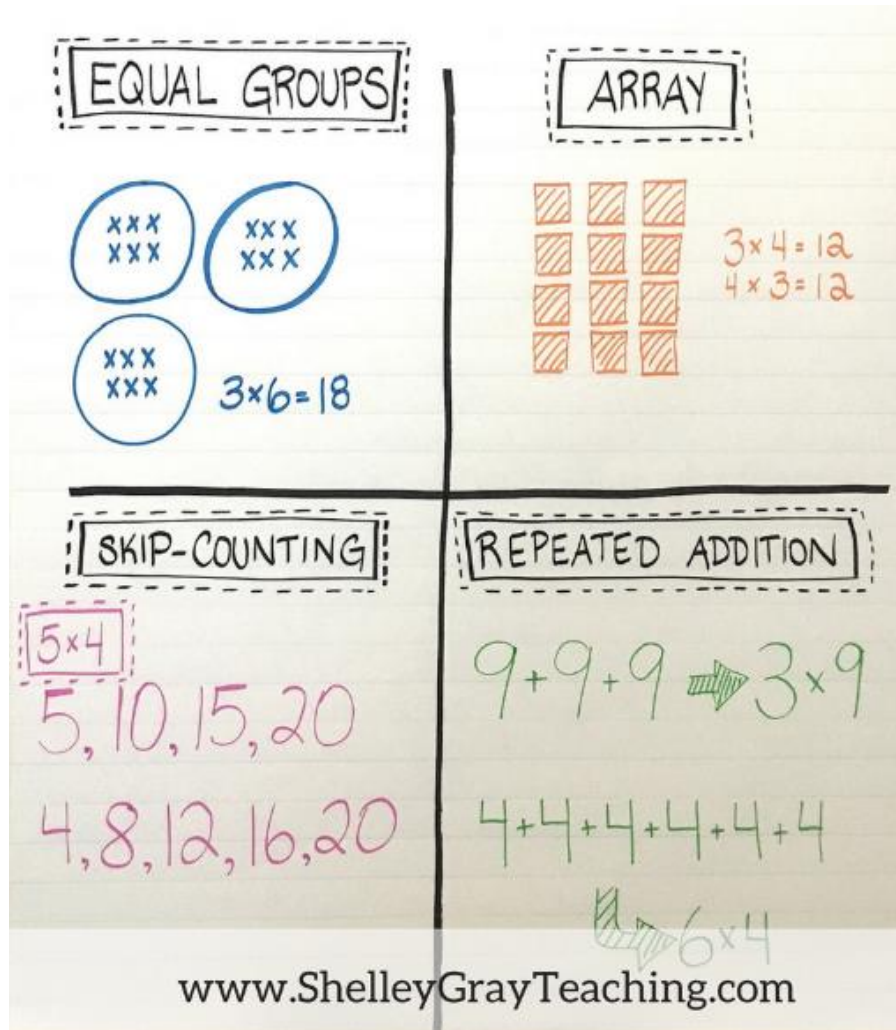 EQUAL GROUPS
xxx
xxx
xxx
xxx
xxx
xxx
3×6=18
ARRAY
3×4=12
4×3=12
SKIP-COUNTING
5×4
5, 10, 15, 20
4, 8, 12, 16, 20
REPEATED ADDITION
9+9+9 → 3×9
4+4+4+4+4+4
→ 6×4
www.ShelleyGrayTeaching.com